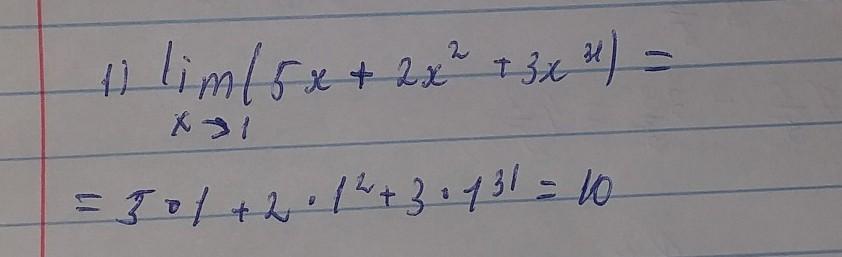 1) lim(5x + 2x² + 3x³¹) =
x→1
= 5·1 + 2·1² + 3·1³¹ = 10